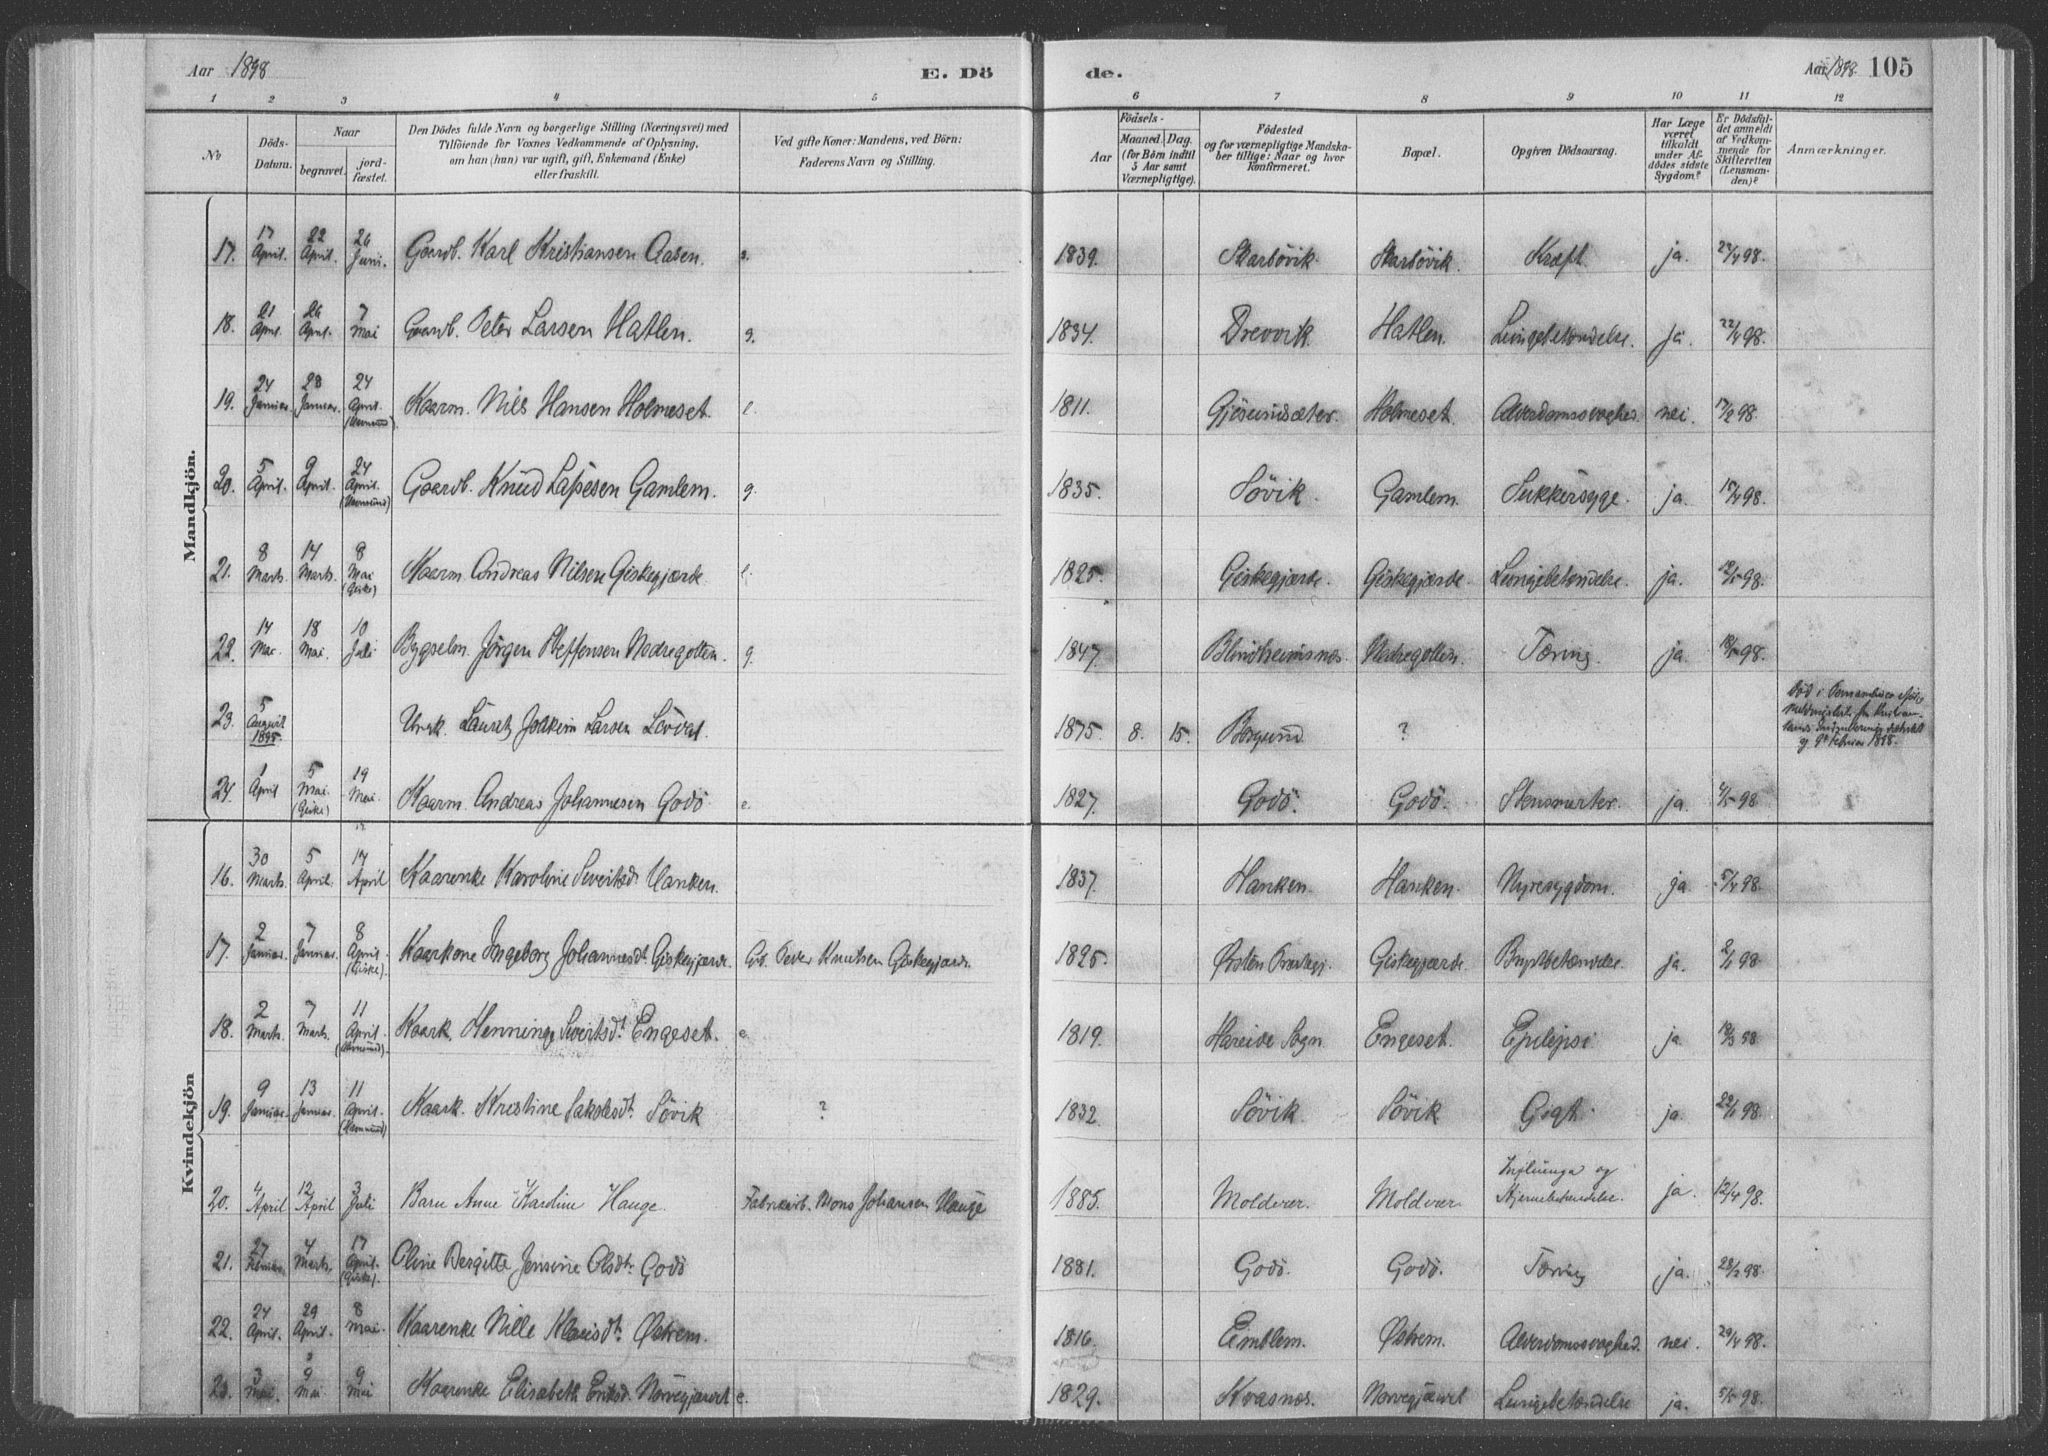 Aar 1898
E. Dö
de.
Aar 1898. 105
1 2 3 4 5 6 7 8 9 10 11 12
No
Döds-
Datum.
Naar
begravet.
jord-
fæstet.
Den Dödes fulde Navn og borgerlige Stilling (Næringsvei) med
Tilföiende for Voxnes Vedkommende af Oplysning,
om han (hun) var ugift, gift, Enkemand (Enke)
eller fraskilt.
Ved gifte Koner: Mandens, ved Börn:
Faderens Navn og Stilling.
Födsels-
Aar
Maaned.
Dag.
(for Börn indtil
5 Aar samt
Værnepligtige).
Födested
og for værnepligtige Mandska-
ber tillige: Naar og hvor
konfirmeret.
Bopæl.
Opgiven Dödsaarsag.
Har Læge
været
tilkaldt
under Af-
dödes sidste
Sygdom?
Er Dödsfal-
det anmeldt
af Vedkom-
mende for
Skifteretten
(Lensman-
den)?
Anmærkninger.
Mandkjön.
17. 17 April. 22 April. 26 Juni. Gaardb. Karl Kristiansen Aasen. 1839. Skarbövik. Skarbövik. Kræft. ja.
18. 21 April. 26 April. 7 Mai Gaardb. Peter Larsen Hatlen. g. 1834. Drevvik. Hatlen. Lungebetændelse. ja. 22/4 98.
19. 24 Januar. 28 Januar. 24 April. Kaarm. Nils Hansen Holmeset. e. 1811. Gjøsundsæter. Holmeset. Alderdomssvaghed nei. 17/2 98.
20. 5 April. 9 April. 24 April. Gaardb. Knud Lassesen Gamlem. g. 1835. Sövik. Gamlem. Sukkersyge. ja.
21. 8 Marts. 14 Marts. 8 Mai (Giske) Kaarm. Andreas Nilsen Giskegjærde. e. 1825. Giskegjærde. Giskegjærde. Lungebetændelse. ja.
22. 14 Mai. 18 Mai. 10 Juli Bygselm. Jörgen Steffensen Nedregotten. g. 1847. Blindheimsnes. Nedregotten. Tæring. ja.
23. 5 August 1895. Ungk. Laurits Joakim Larsen Lövdal. 1875 8. 15. Borgund ? Död i Pernambuco
24. 1 April 5 Mai (Giske) 19 Mai. Kaarm. Andreas Johannesen Godö. e. 1827. Godö. Godö. Stensmerter. ja.
Kvindekjön
16. 30 Marts. 5 April. 17 April Kaarenke Karoline Sivertsdt. Hanken. 1837. Hanken. Hanken. Nyresygdom. ja
17. 2 Januar. 7 Januar. 8 April. (Giske) Kaarkone Ingeborg Johannesdt. Giskegjærde. Gb. Peder Knutsen Giskegjærde. 1825. Ørsten Præstegj. Giskegjærde. Brystbetændelse. ja.
18. 2 Marts. 7 Marts. 11 April. Kaark. Henninge Sivertsdt. Engeset. e. 1819. Hareide Sogn Engeset. Epilepsi ja
19. 9 Januar. 13 Januar. 11 April. Kaark. Kristine Sakslesdt. Sövik ? 1832. Sövik. Sövik Gigt. ja.
20. 4 April 12 April 3 Juli Barn Anne Karoline Hauge. Fabrikarb. Mons Johansen Hauge 1885. Moldvær. Moldvær Influenza og Hjernebetændelse. ja. 12/4 98.
21. 27 Februar. 4 Marts. 17 April. (Giske). Oline Bergitte Jensine Olsdtr. Godö 1881. Godö. Godö. Tæring ja. 28/2 98.
22. 24 April. 29 April. 8 Mai. Kaarenke Nille Klausdt. Østrem. 1816. Emblem. Østrem. Alderdomssvaghed. nei. 29/4 98.
23. 3 Mai. 9 Mai 9 Mai Kaarenke Elisabeth Eriksd. Norvegjæret e. 1829. Kvasnes. Norvegjæret Lungebetændelse ja. 5/5 98.